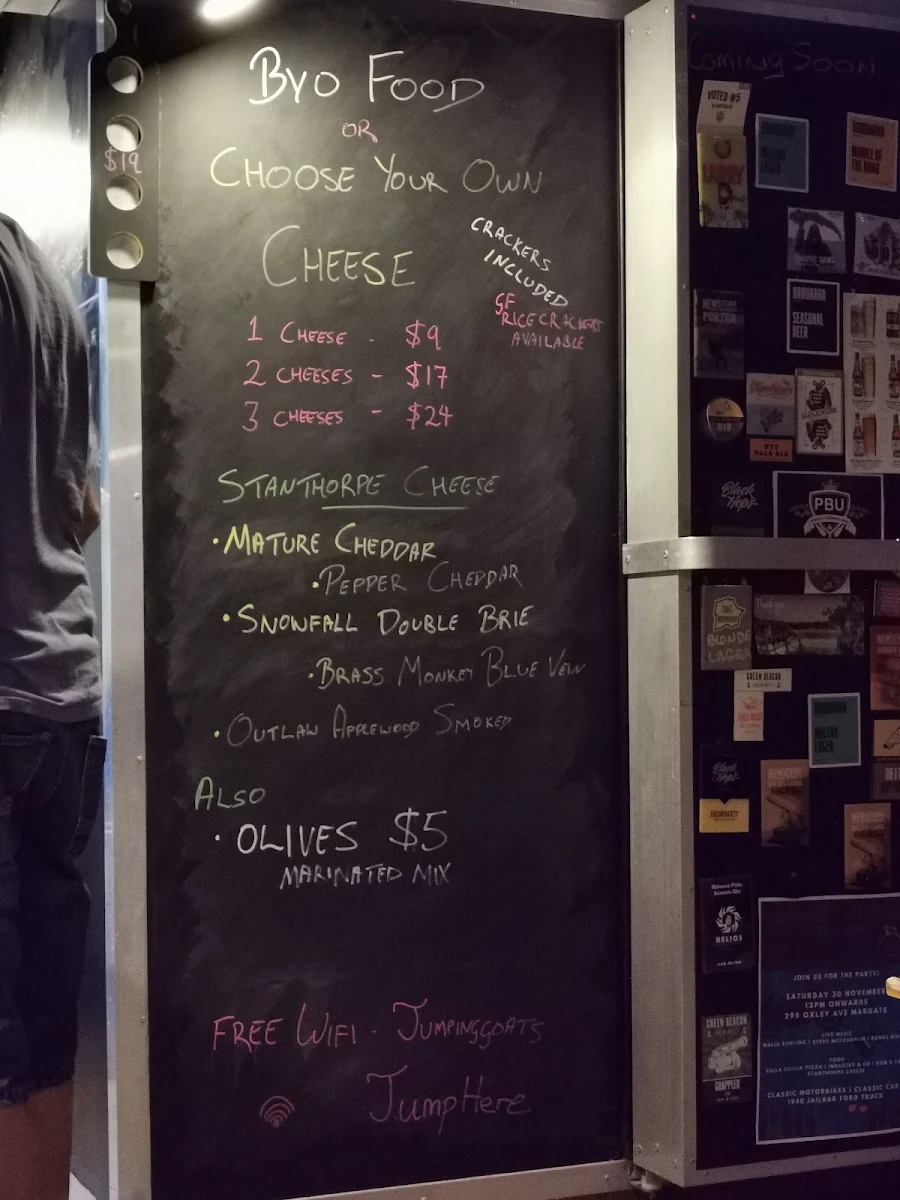 Byo Food
OR
Choose Your Own
Cheese
CRACKERS
INCLUDED
GF
RICE CRACKERS
AVAILABLE
1 Cheese - $9
2 cheeses - $17
3 cheeses - $24
Stanthorpe Cheese
• Mature Cheddar
• Pepper Cheddar
• Snowfall Double Brie
• Brass Monkey Blue Vein
• Outlaw Applewood Smoked
Also
• OLIVES $5
MARINATED MIX
FREE WIFI - Jumpinggoats
JumpHere
$19
Coming Soon
VOTED #5
MIDDLE OF
THE ROAD
NEWSTEAD
PORTER
SEASONAL
BEER
CLOCKWORK
RYE
PALE ALE
Black
Hops
PBU
BLONDE
LAGER
GREEN BEACON
LAGER
Black
Hops
HORNET
HELIOS
GREEN BEACON
GRAPPLER
JOIN US FOR THE PARTY!
SATURDAY 30 NOVEMBER
12PM ONWARDS
295 OXLEY AVE MARGATE
LIVE MUSIC
FOOD
STANTHORPE CHEESE
CLASSIC MOTORBIKES | CLASSIC
1940 JAILBAR FORD TRUCK